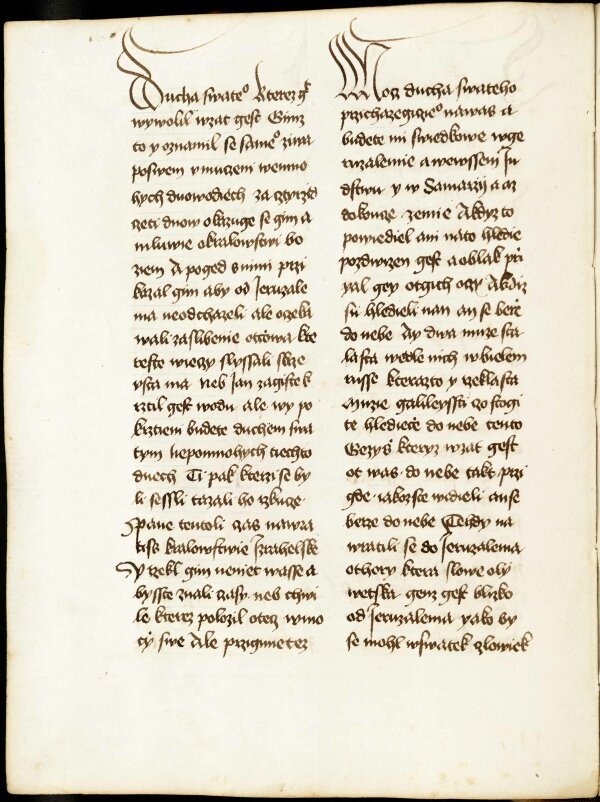 Ducha swateᵒ kterez gᵗ
wywolil wzat gest Gimz
to y oznamil se sameᵒ ziwa
poswem vmuczeni wemno
hych duowodiech za cztyrzid
czeti dnow okazuge se gim a
mluwie okralowstwi bo
ziem A poged snimi przi
kazal gim aby od Jeruzale
ma neodchazeli ale oczeka
wali zaslibenie otcowa kte
reste wieczy slyssali skze
vsta ma neb Jan zagistek
rztil gest wodu ale wy po
krztieni budete duchem swa
tym nepomnohych tiechto
dnech Ti pak kterzi se by
li sessli tazali ho rzkucze
Pane tentoli czas nawra
tiss kralowstwie Izrahelske
Y rzekl gim neniet wasse a
bysste znali czasy neb chwi
le kterez polozil otecz wmo
cy swe Ale przigmetez
Mocz ducha swateho
przichazegicieᵒ nawas a
budete mi swiedkowe wge
ruzalemie a wewssem Ju
dstwu y w Samarzij a az
dokoncze zemie A kdyz to
powiediel ani nato hledie
pozdwizen gest a oblak pri
yal gey otgich oczy A kdiz
su hledieli nan an se berze
do nebe Ay dwa muze sta
lasta wedle nich w bielem
russe kterazto y rzeklasta
Muzie galileyssti czo stogi
te hlediecze do nebe tento
Gezys kteryz wzat gest
ot was do nebe takt przi
gde iakozste widieli anse
berze do nebe Tehdy na
wratili se do Jeruzalema
othory ktera slowe oly
wetska genz gest blizko
od Jeruzalema yako by
se mohl wswatek czlowiek